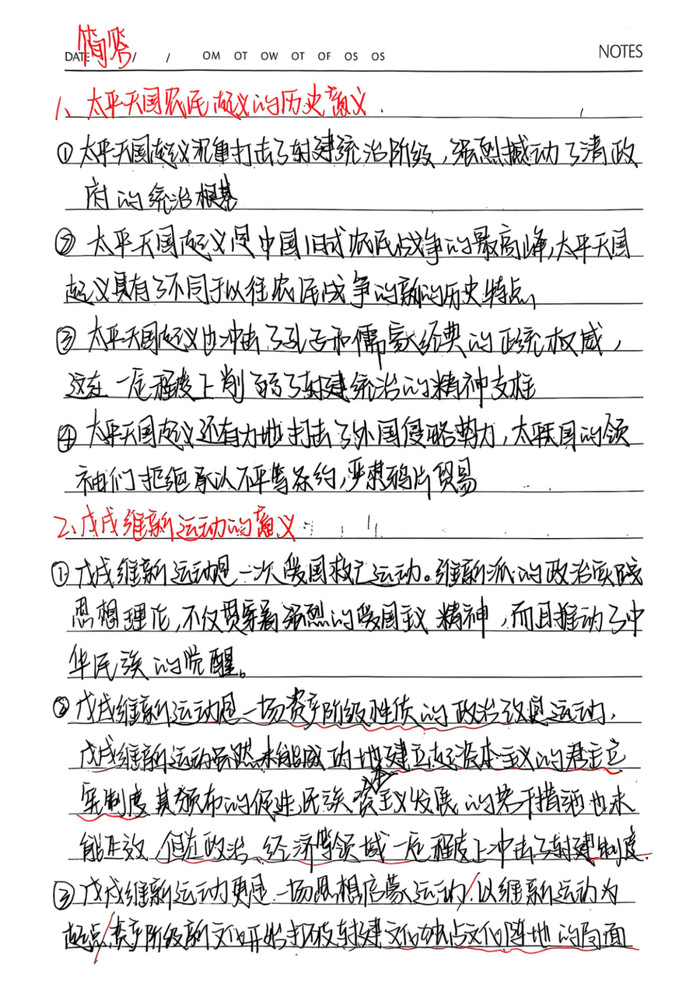 简答
DATE / / OM OT OW OT OF OS OS NOTES
1、太平天国农民起义的历史意义
①太平天国起义沉重打击了封建统治阶级,强烈撼动了清政
府的统治根基
② 太平天国起义是中国旧式农民战争的最高峰,太平天国
起义具有了不同于以往农民战争的新的历史特点、
③ 太平天国起义也冲击了孔子和儒家经典的正统权威,
这在一定程度上削弱了封建统治的精神支柱
④ 太平天国起义还有力地打击了外国侵略势力,太平天国的领
袖们拒绝承认不平等条约,严禁鸦片贸易
2、戊戌维新运动的意义
①戊戌维新运动是一次爱国救亡运动。维新派的政治实践
思想理论,不仅贯穿着强烈的爱国主义精神,而且推动了中
华民族的觉醒。
② 戊戌维新运动是一场资产阶级性质的政治改良运动,
戊戌维新运动虽然未能成功地建立起资本主义的君主立
宪制度,其颁布的促进民族资本主义发展的若干措施也未
能生效,但在政治、经济等领域一定程度上冲击了封建制度.
③ 戊戌维新运动更是一场思想启蒙运动,以维新运动为
起点,资产阶级新文化开始打破封建文化独占文化阵地的局面